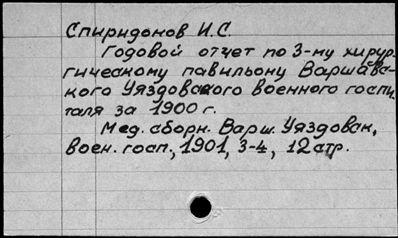 Спиридонов И.С.
Годовой отчет по 3-му хирур-
гическому павильону Варшавс-
кого Уяздовского военного госпи
таля за 1900 г.
Мед. сборн. Варш. Уяздовск,
воен. госп., 1901, 3-4, 12 стр.